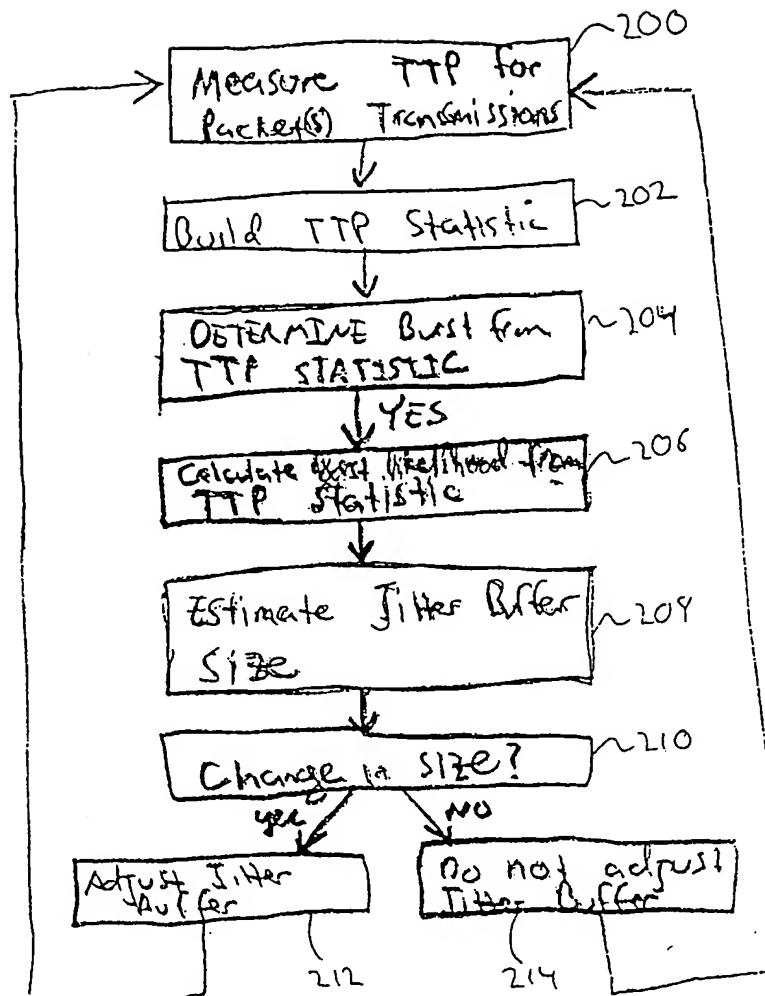 200
Measure TTP for
Packet(s) Transmissions
Build TTP Statistic
202
DETERMINE Burst from
TTP STATISTIC
204
YES
Calculate burst likelihood from
TTP Statistic
206
Estimate Jitter Buffer
Size
209
Change in size?
210
yes
NO
Adjust Jitter
Buffer
Do not adjust
Jitter Buffer
212
214